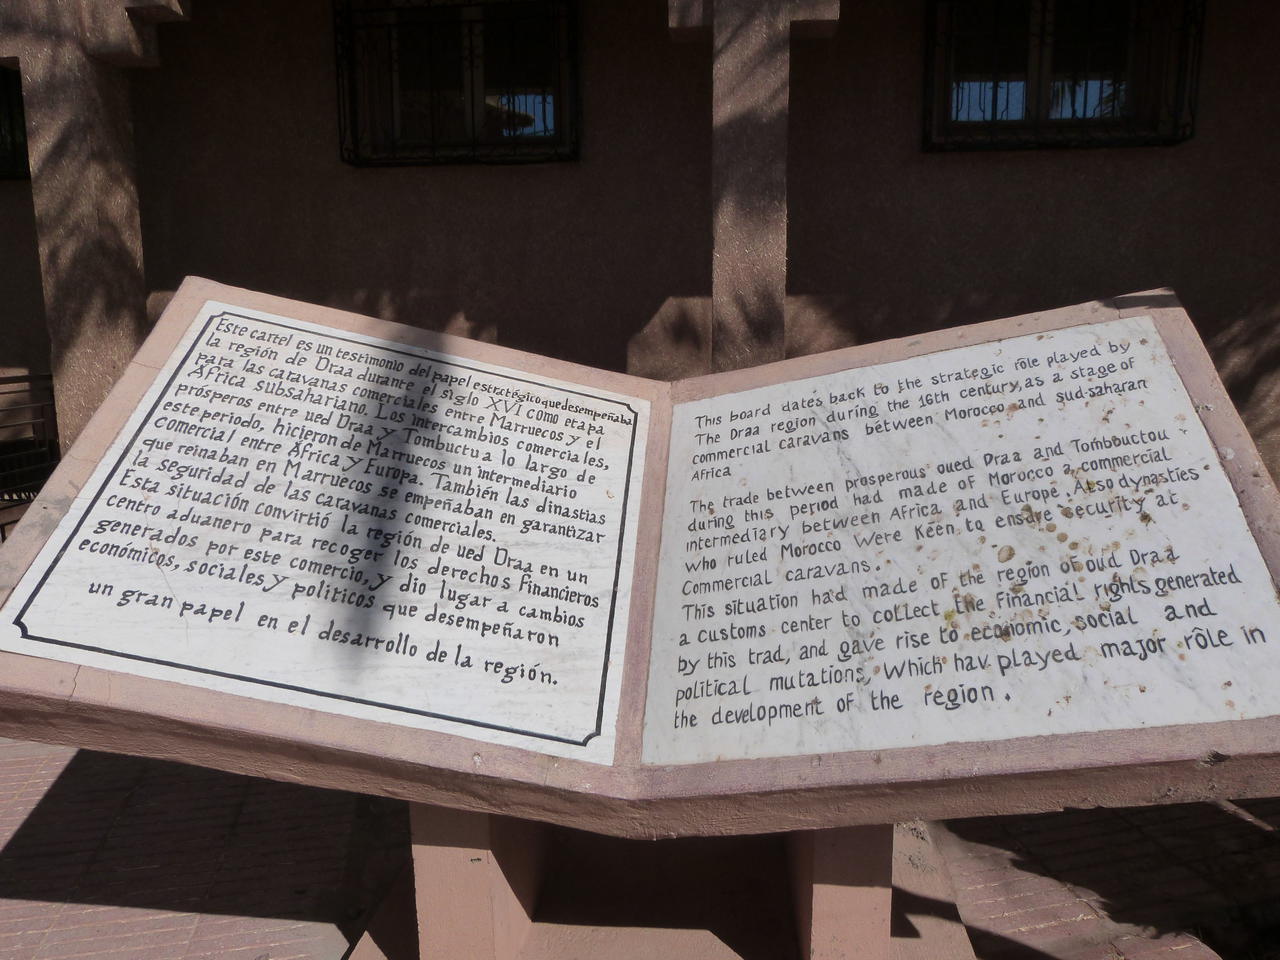 Este cartel es un testimonio del papel estratégico que desempeñaba
la región de Draa durante el siglo XVI como etapa
para las caravanas comerciales entre Marruecos y el
África subsahariano. Los intercambios comerciales,
prósperos entre ued Draa y Tombuctu a lo largo de
este periodo, hicieron de Marruecos un intermediario
comercial entre África y Europa. También las dinastias
que reinaban en Marruecos se empeñaban en garantizar
la seguridad de las caravanas comerciales.
Esta situación convirtió la región de ued Draa en un
centro aduanero para recoger los derechos financieros
generados por este comercio, y dio lugar a cambios
económicos, sociales y politicos que desempeñaron
un gran papel en el desarrollo de la región.
This board dates back to the strategic rôle played by
The Draa region during the 16th century, as a stage of
commercial caravans between Morocco and sud-saharan
Africa
The trade between prosperous oued Draa and Tombouctou
during this period had made of Morocco a commercial
intermediary between Africa and Europe. Also dynasties
who ruled Morocco Were Keen to ensure security at
Commercial caravans.
This situation had made of the region of oud Draa
a customs center to collect the financial rights generated
by this trad, and gave rise to economic, social and
political mutations, Which hav played major rôle in
the development of the region.